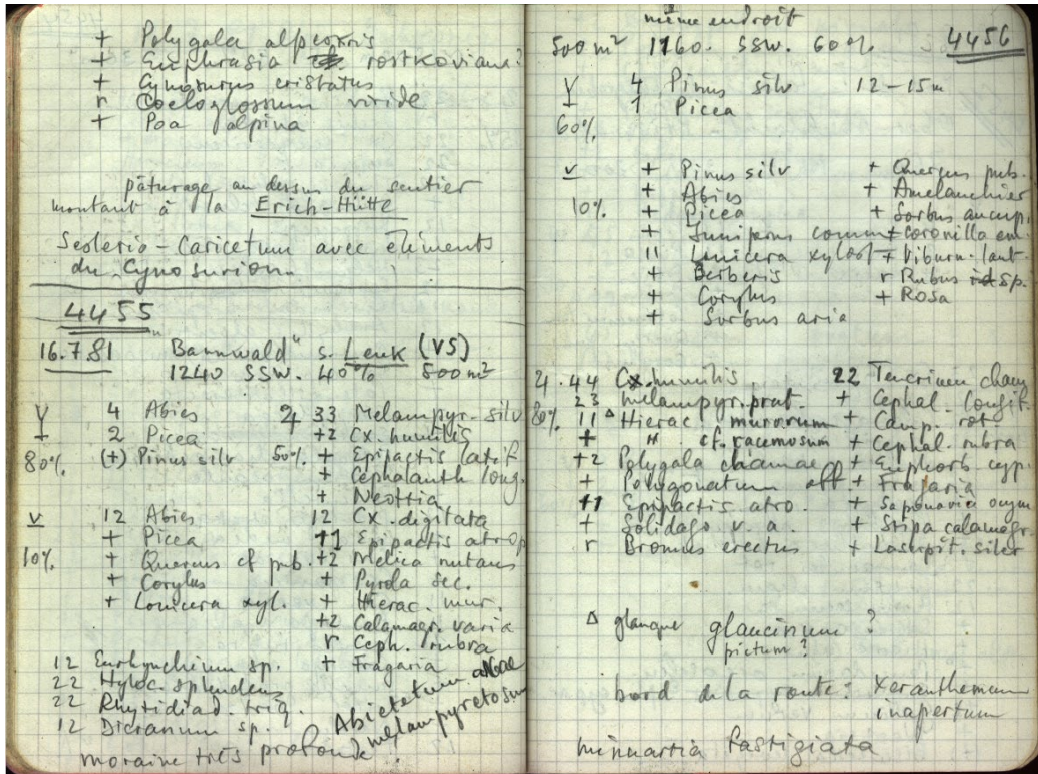 + Polygala alpestris
+ Euphrasia rostkoviana?
+ Cynosurus cristatus
r Coeloglossum viride
+ Poa alpina
pâturage au dessus du sentier
montant à la Erich-Hütte
Seslerio-Caricetum avec éléments
du Cynosurion
4455
16.7.81 Bannwald" s. Leuk (VS)
1240 SSW. 40% 500 m²
4 Abies
2 Picea
80% (+) Pinus silv
v 12 Abies
+ Picea
10% + Quercus cf pub.
+ Corylus
+ Lonicera xyl.
12 Eurhynchium sp.
22 Hyloc. splendens
22 Rhytidiad. triq.
12 Dicranum sp.
moraine très profonde
33 Melampyr. silv
+2 Cx. humilis
50% + Epipactis latif.
+ Cephalanth long.
+ Neottia
12 Cx. digitata
11 Epipactis atrop
+2 Melica nutans
+ Pyrola sec.
+ Hierac. mur.
+2 Calamagr. varia
r Ceph. rubra
+ Fragaria
Abietetum albae
melampyretosum
même endroit
500 m² 1160. SSW. 60% 4456
4 Pinus silv 12-15m
1 Picea
60%
v + Pinus silv
+ Abies
10% + Picea
+ Juniperus comm
11 Lonicera xylost
+ Berberis
+ Corylus
+ Sorbus aria
+ Quercus pub.
+ Amelanchier
+ Sorbus aucup
+ Coronilla em.
+ Viburn. lant.
r Rubus sp.
+ Rosa
44 Cx. humilis
23 Melampyr. prat.
80% 11 Δ Hierac. murorum
+ " cf. racemosum
+2 Polygala chamae
+ Polygonatum off
11 Epipactis atro.
+ Solidago v. a.
r Bromus erectus
22 Teucrium cham
+ Cephal. longif.
+ Camp. rot
+ Cephal. rubra
+ Euphorb cyp.
+ Fragaria
+ Saponaria ocym
+ Stipa calamagr.
+ Laserpit. siler
Δ glauque glaucinum ?
pictum ?
bord de la route: Xeranthemum
inapertum
Minuartia fastigiata